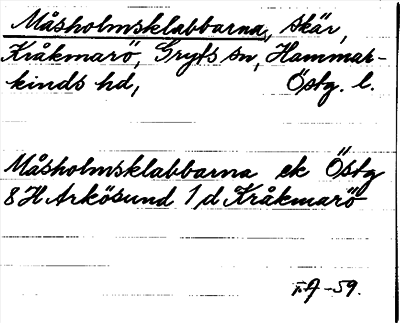 Måsholmsklabbarna, skär,
Kråkmarö, Gryts sn, Hammar-
kinds hd, Östg. l.
Måsholmsklabbarna ek Östg
8 H Arkösund 1 d Kråkmarö
-59.